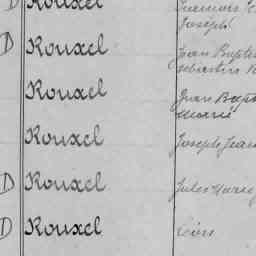 D Rouxel François
Joseph
D Rouxel Jean Baptis
Sébastien
Rouxel Jean Bapt
Marie
Rouxel Joseph Jean
D Rouxel Jules Marie
D Rouxel Léon